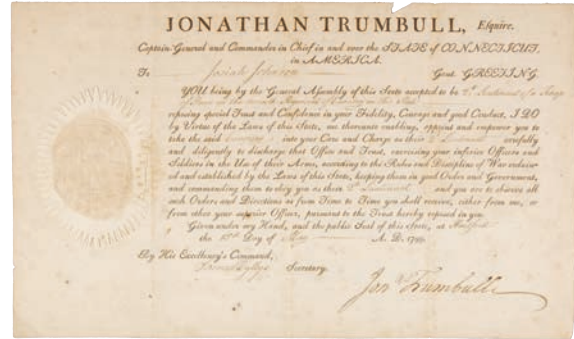 JONATHAN TRUMBULL, Esquire.
Captain-General and Commander in Chief in and over the STATE of CONNECTICUT,
in AMERICA.
To Josiah Johnson Gent. GREETING.
YOU being by the General Assembly of this State accepted to be 2d Lieutenant of a Troop
of in the Regiment of in this State
reposing special Trust and Confidence in your Fidelity, Courage and good Conduct, I DO
by Virtue of the Laws of this State, me thereunto enabling, appoint and empower you to
take the said into your Care and Charge as their 2d Lieutenant carefully
and diligently to discharge that Office and Trust, exercising your inferior Officers and
Soldiers in the Use of their Arms, according to the Rules and Discipline of War
ed and established by the Laws of this State, keeping them in good Order and Government,
and commanding them to obey you as their 2d Lieutenant and you are to observe all
such Orders and Directions as from Time to Time you shall receive, either from me, or
from other your superior Officer, pursuant to the Trust hereby reposed in you.
Given under my Hand, and the public Seal of this State, at Hartford
the Day of May A. D.
By His Excellency's Command,
Wyllys Secretary.
Jonth Trumbull